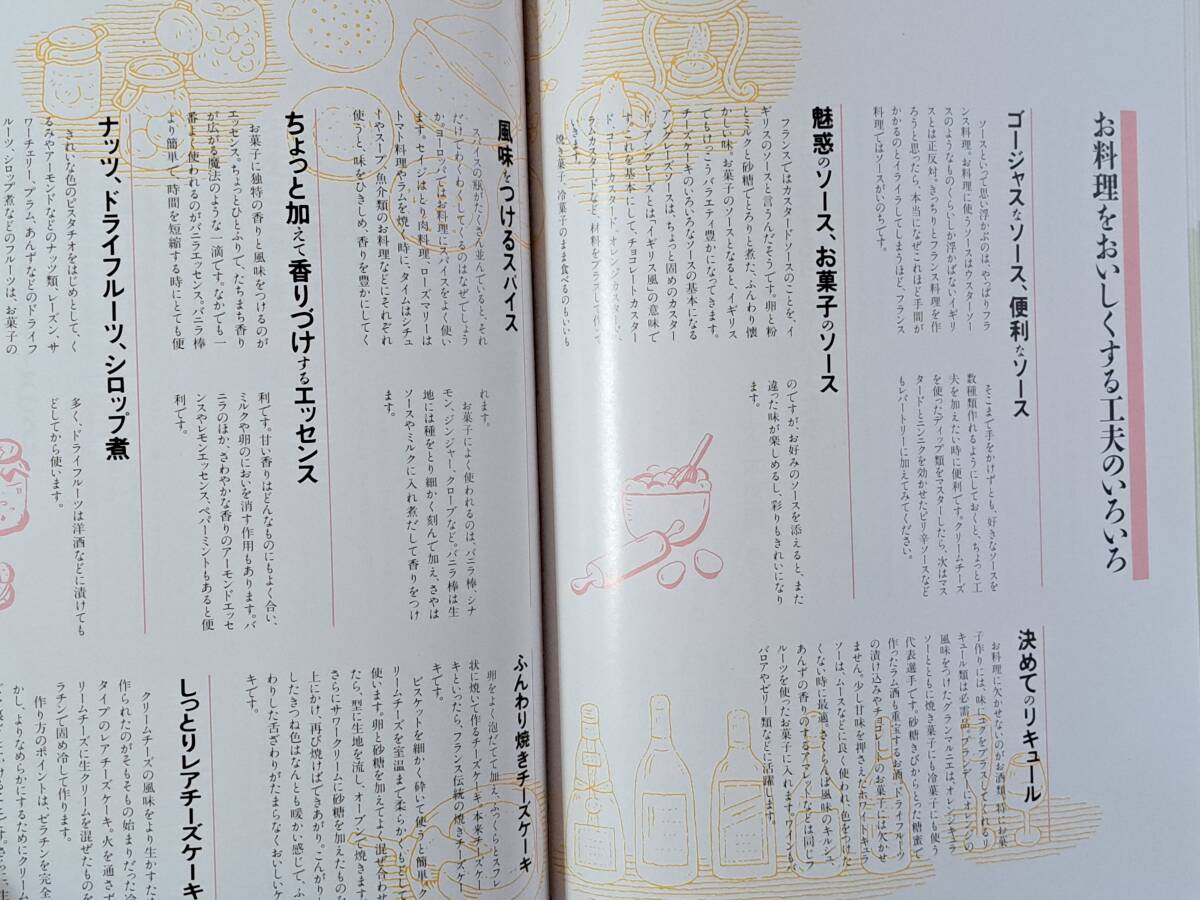 お料理をおいしくする工夫のいろいろ
ゴージャスなソース、便利なソース
ソースといって思い浮かぶのは、やっぱりフラ
ンス料理。お料理に使うソースはウスターソー
スのようなものくらいしか浮かばないイギリ
スとは正反対。きっちりとフランス料理を作
ろうと思ったら、本当になぜこれほど手間が
かかるのとイライラしてしまうほど、フランス
料理ではソースがいのちです。
そこまで手をかけずとも、好きなソースを
数種類作れるようにしておくと、ちょっと工
夫を加えたい時に便利です。クリームチーズ
を使ったディップ類をマスターしたら、次はマス
タードとニンニクを効かせたピリ辛ソースなど
もレパートリーに加えてみてください。
魅惑のソース、お菓子のソース
フランスではカスタードソースのことを、イ
ギリスのソースと言うんだそうです。卵と粉
とミルクと砂糖でとろりと煮た、ふんわり懐
かしい味。お菓子のソースとなると、イギリス
でもけっこうバラエティ豊かになってきます。
チーズケーキのいろいろなソースの基本になる
アングレーズソースは、ちょっと固めのカスター
ド。アングレーズとは「イギリス風」の意味で
す。これを基本にして、チョコレートカスター
ド、コーヒーカスタード、オレンジカスタード、
ラムカスタードなど、材料をプラスして作って
いきます。
焼き菓子、冷菓子のまま食べるのもいいも
のですが、お好みのソースを添えると、また
違った味が楽しめるし、彩りもきれいになり
ます。
決めてのリキュール
お料理に欠かせないのがお酒類。特にお菓
子作りには、味にコクをプラスしてくれるリ
キュール類は必需品。ブランデーにオレンジの
風味をつけたグランマルニエは、オレンジキュラ
ソーとともに焼き菓子にも冷菓子にも使う
代表選手です。砂糖きびからとった糖蜜で
作ったラム酒も重宝するお酒。ドライフルーツ
の漬け込みやチョコレートのお菓子には欠かせ
ません。少し甘味を押さえたホワイトキュラ
ソーは、ムースなどに良く使われ、色をつけた
くない時に最適。さくらんぼ風味のキルシュ、
あんずの香りのするアマレットなどは同じフ
ルーツを使ったお菓子に入れます。ワインもバ
バロアやゼリー類などに活躍します。
風味をつけるスパイス
スパイスの瓶がたくさん並んでいると、それ
だけでわくわくしてくるのはなぜでしょう
か。ヨーロッパではお料理にスパイスをよく使い
ます。セイジはとり肉料理、ローズマリーは
トマト料理やラムを焼く時に、タイムはシチュ
ーやスープ、魚介類のお料理などにそれぞれ
使うと、味をひきしめ、香りを豊かにしてく
れます。
お菓子によく使われるのは、バニラ棒、シナ
モン、ジンジャー、クローブなど。バニラ棒は生
地には種をとり細かく刻んで加え、さやは
ソースやミルクに入れ煮だして香りをつけ
ます。
ちょっと加えて香りづけするエッセンス
お菓子に独特の香りと風味をつけるのが
エッセンス。ちょっとひとふりで、たちまち香り
が広がる魔法のような一滴です。なかでも一
番よく使われるのがバニラエッセンス。バニラ棒
より簡単で、時間を短縮する時にとても便
利です。甘い香りはどんなものにもよく合い、
ミルクや卵のにおいを消す作用もあります。バ
ニラのほか、さわやかな香りのアーモンドエッセ
ンスやレモンエッセンス、ペパーミントもあると便
利です。
ナッツ、ドライフルーツ、シロップ煮
きれいな色のピスタチオをはじめとして、く
るみやアーモンドなどのナッツ類、レーズン、サ
ワーチェリー、プラム、あんずなどのドライフ
ルーツ、シロップ煮などのフルーツは、お菓子の
多く、ドライフルーツは洋酒などに漬けても
どしてから使います。
ふんわり焼きチーズケーキ
卵をよく泡だてて加え、ふっくらとスフレ
状に焼いて作るチーズケーキ。本来チーズケー
キといったら、フランス伝統の焼きチーズケー
キです。
ビスケットを細かく砕いて使うと簡単。ク
リームチーズを室温まで柔らかくもどして
使います。卵と砂糖を加えてよく混ぜ合わせ
たら、型に生地を流し、オーブンで焼きます。
さらにサワークリームに砂糖を加えたものを
上にかけ、再び焼けばできあがり。こんがり
したきつね色はなんとも暖かい感じで、ふ
わりした舌ざわりがたまらなくおいしいケ
ーキです。
しっとりレアチーズケーキ
クリームチーズの風味をより生かすため
作られたのがそもそもの始まりだった冷
タイプのレアチーズケーキ。火を通さず
リームチーズに生クリームを混ぜたものを
ラチンで固め冷して作ります。
作り方のポイントは、ゼラチンを完全
かし、よりなめらかにするためにクリーム